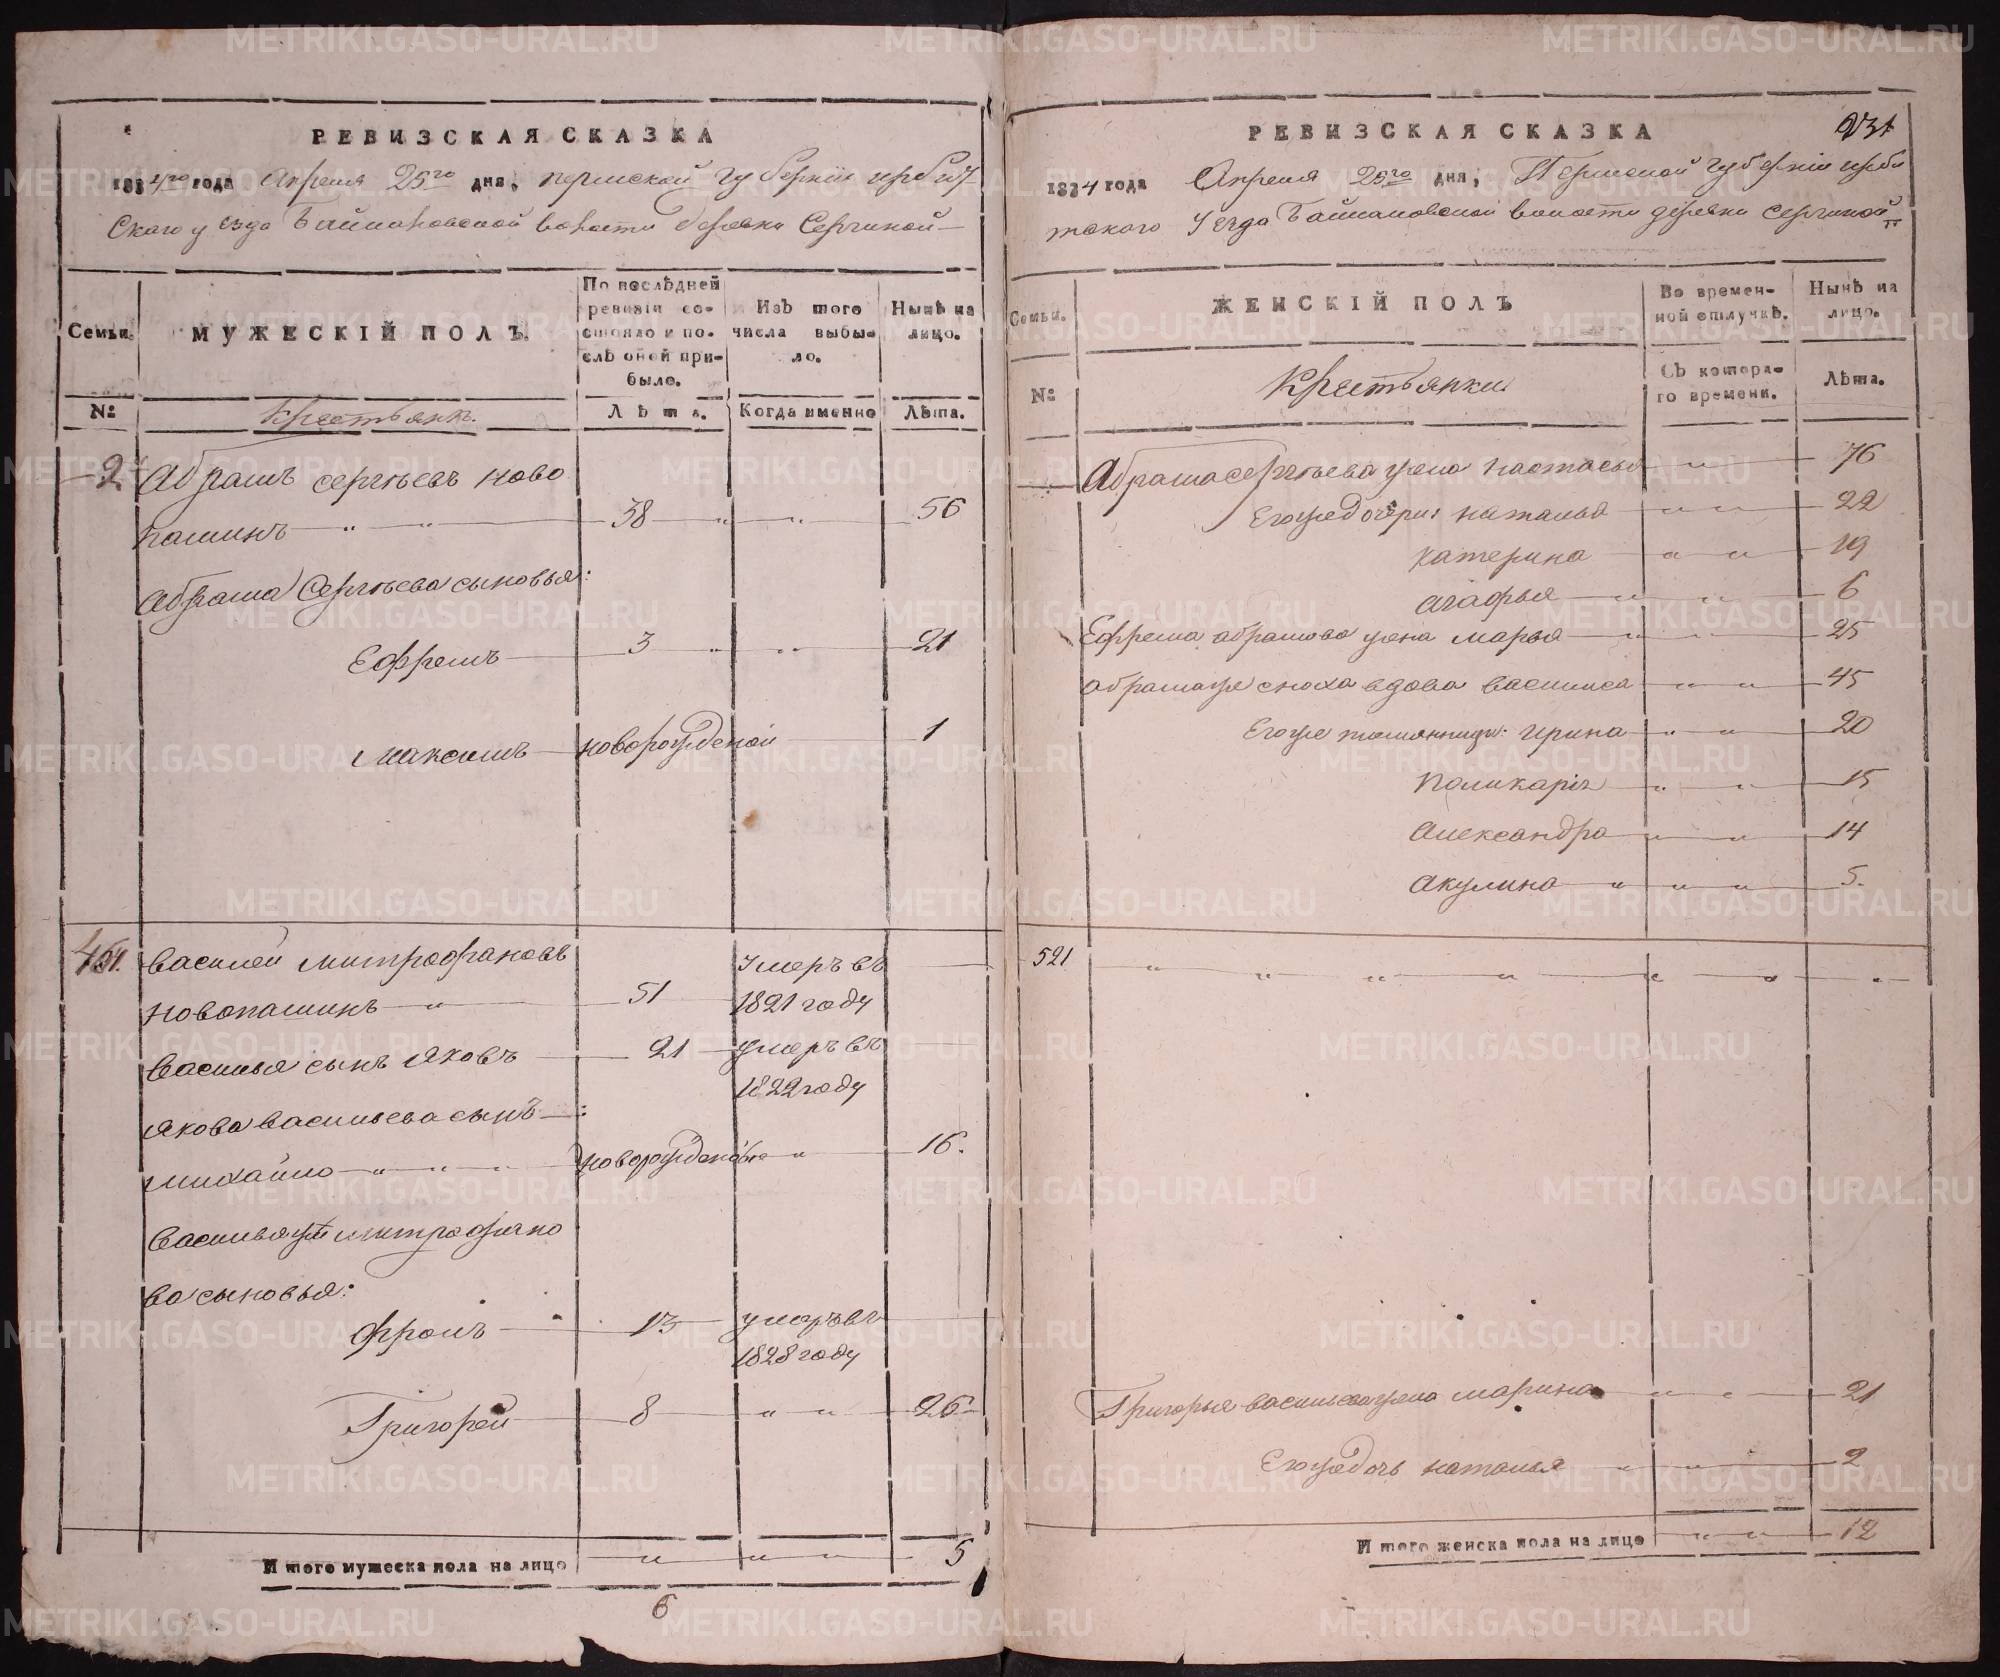 РЕВИЗСКАЯ СКАЗКА
1834го года Апреля 25го дня, пермской губернии ирбит-
скаго уезда Баймаковской волости деревни Сергиной
Семьи.
МУЖЕСКІЙ ПОЛЪ.
По послѣдней ревизіи состояло и послѣ оной прибыло.
Изъ того числа выбыло.
Нынѣ на лицо.
№
Крестьянъ.
Лѣта.
Когда именно
Лѣта.
2 Абрамъ сергѣевъ ново
пашинъ 38 56
абрама Сергѣева сыновья:
Ефремъ 3 21
максимъ новорожденой 1
василей митрофановъ Умеръ въ
новопашинъ 51 1821 году
василья сынъ яковъ 21 умеръ въ
1822 году
якова васильева сынъ
михайло новорожденой 16.
василья же митрофано
ва сыновья:
фролъ 13 умеръ въ
1828 году
Григорей 8 26
И того мужеска пола на лицо 5
6
РЕВИЗСКАЯ СКАЗКА
231
1834 года Апреля 25го дня, Пермской губерніи ирби
тского Уезда Баймаковской волости деревни сергиной
Семьи.
ЖЕНСКІЙ ПОЛЪ
Во временной отлучкѣ.
Нынѣ на лицо.
№
Крестьянки
Съ которого времени.
Лѣта.
Абрама сергѣева жена настасья 76
Егоже дочери: наталья 22
катерина 19
агафья 6
Ефрема абрамова жена марья 25
абрама же сноха вдова василиса 45
Егоже племянницы: ирина 20
15
александра 14
акулина 5.
521
Григорья васильева жена марина 21
Егоже дочь наталья 2
И того женска пола на лицо 12
METRIKI.GASO-URAL.RU